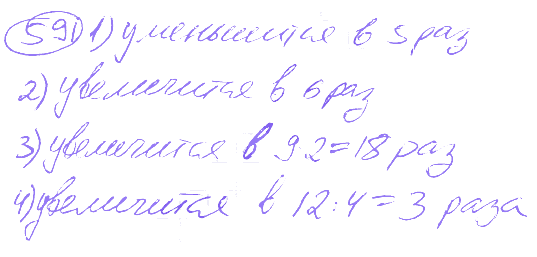 591 1) уменьшится в 5 раз
2) увеличится в 6 раз
3) увеличится в 9·2=18 раз
4) увеличится в 12:4=3 раза